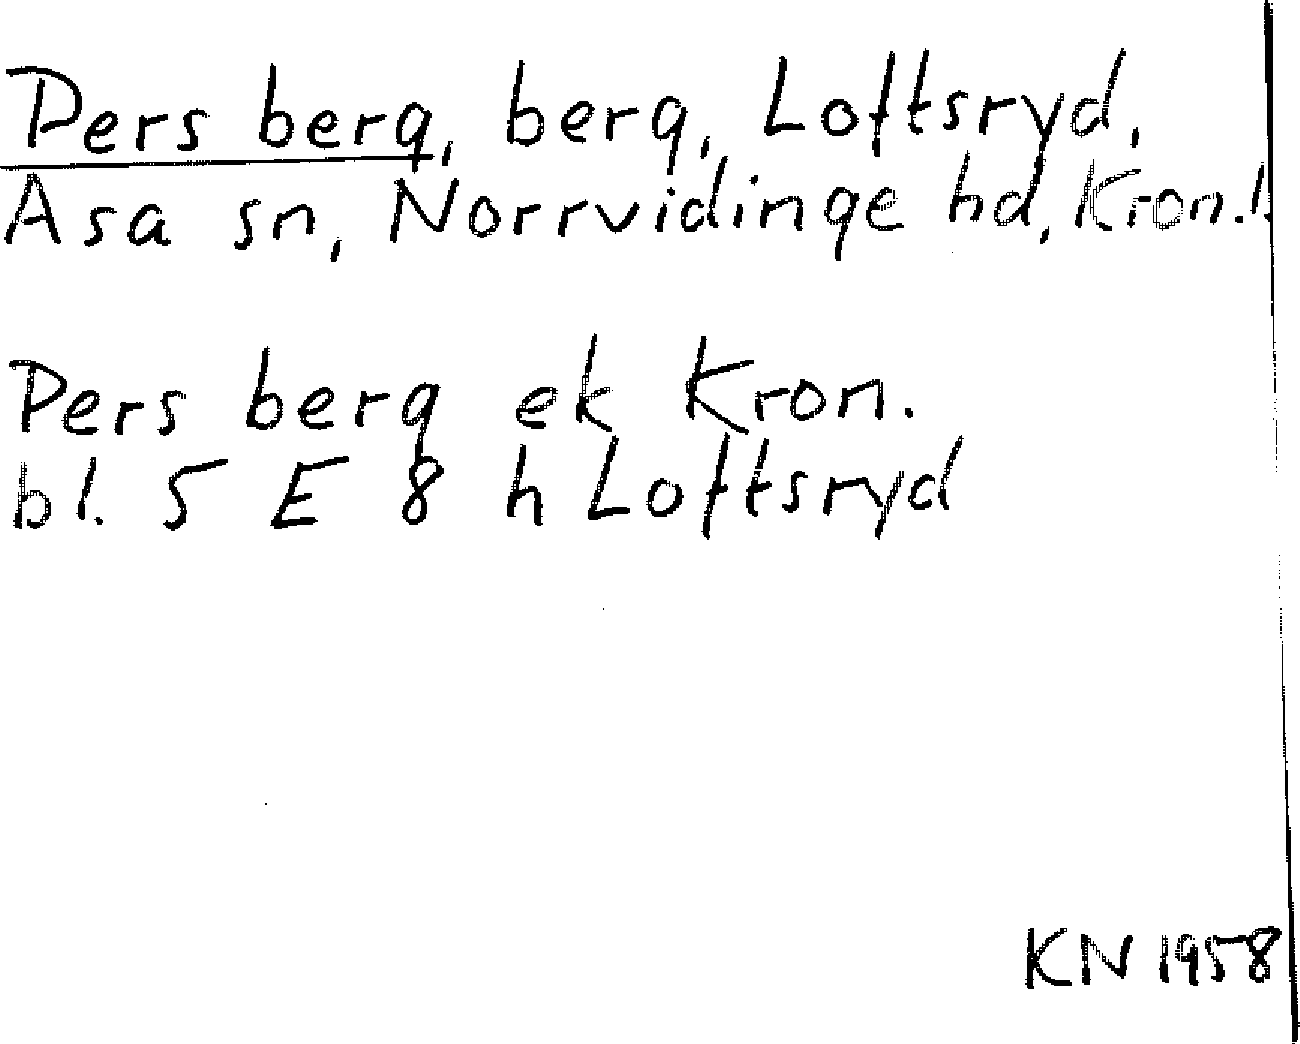 Pers berg, berg, Loftsryd,
Asa sn, Norrvidinge hd, Kron.l.
Pers berg ek Kron.
bl. 5 E 8 h Loftsryd
KN 1958